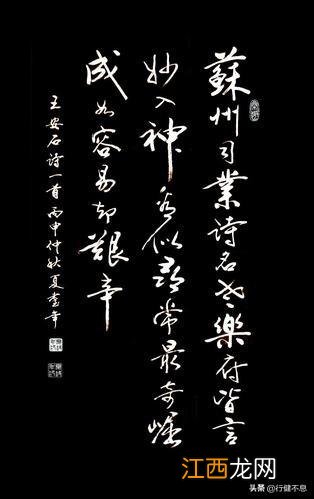 蘇州司業詩名老樂府皆言
妙入神看似尋常最奇崛
成如容易却艱辛
王安石诗一首丙申仲秋夏
江西龙网
头条 @行健不息